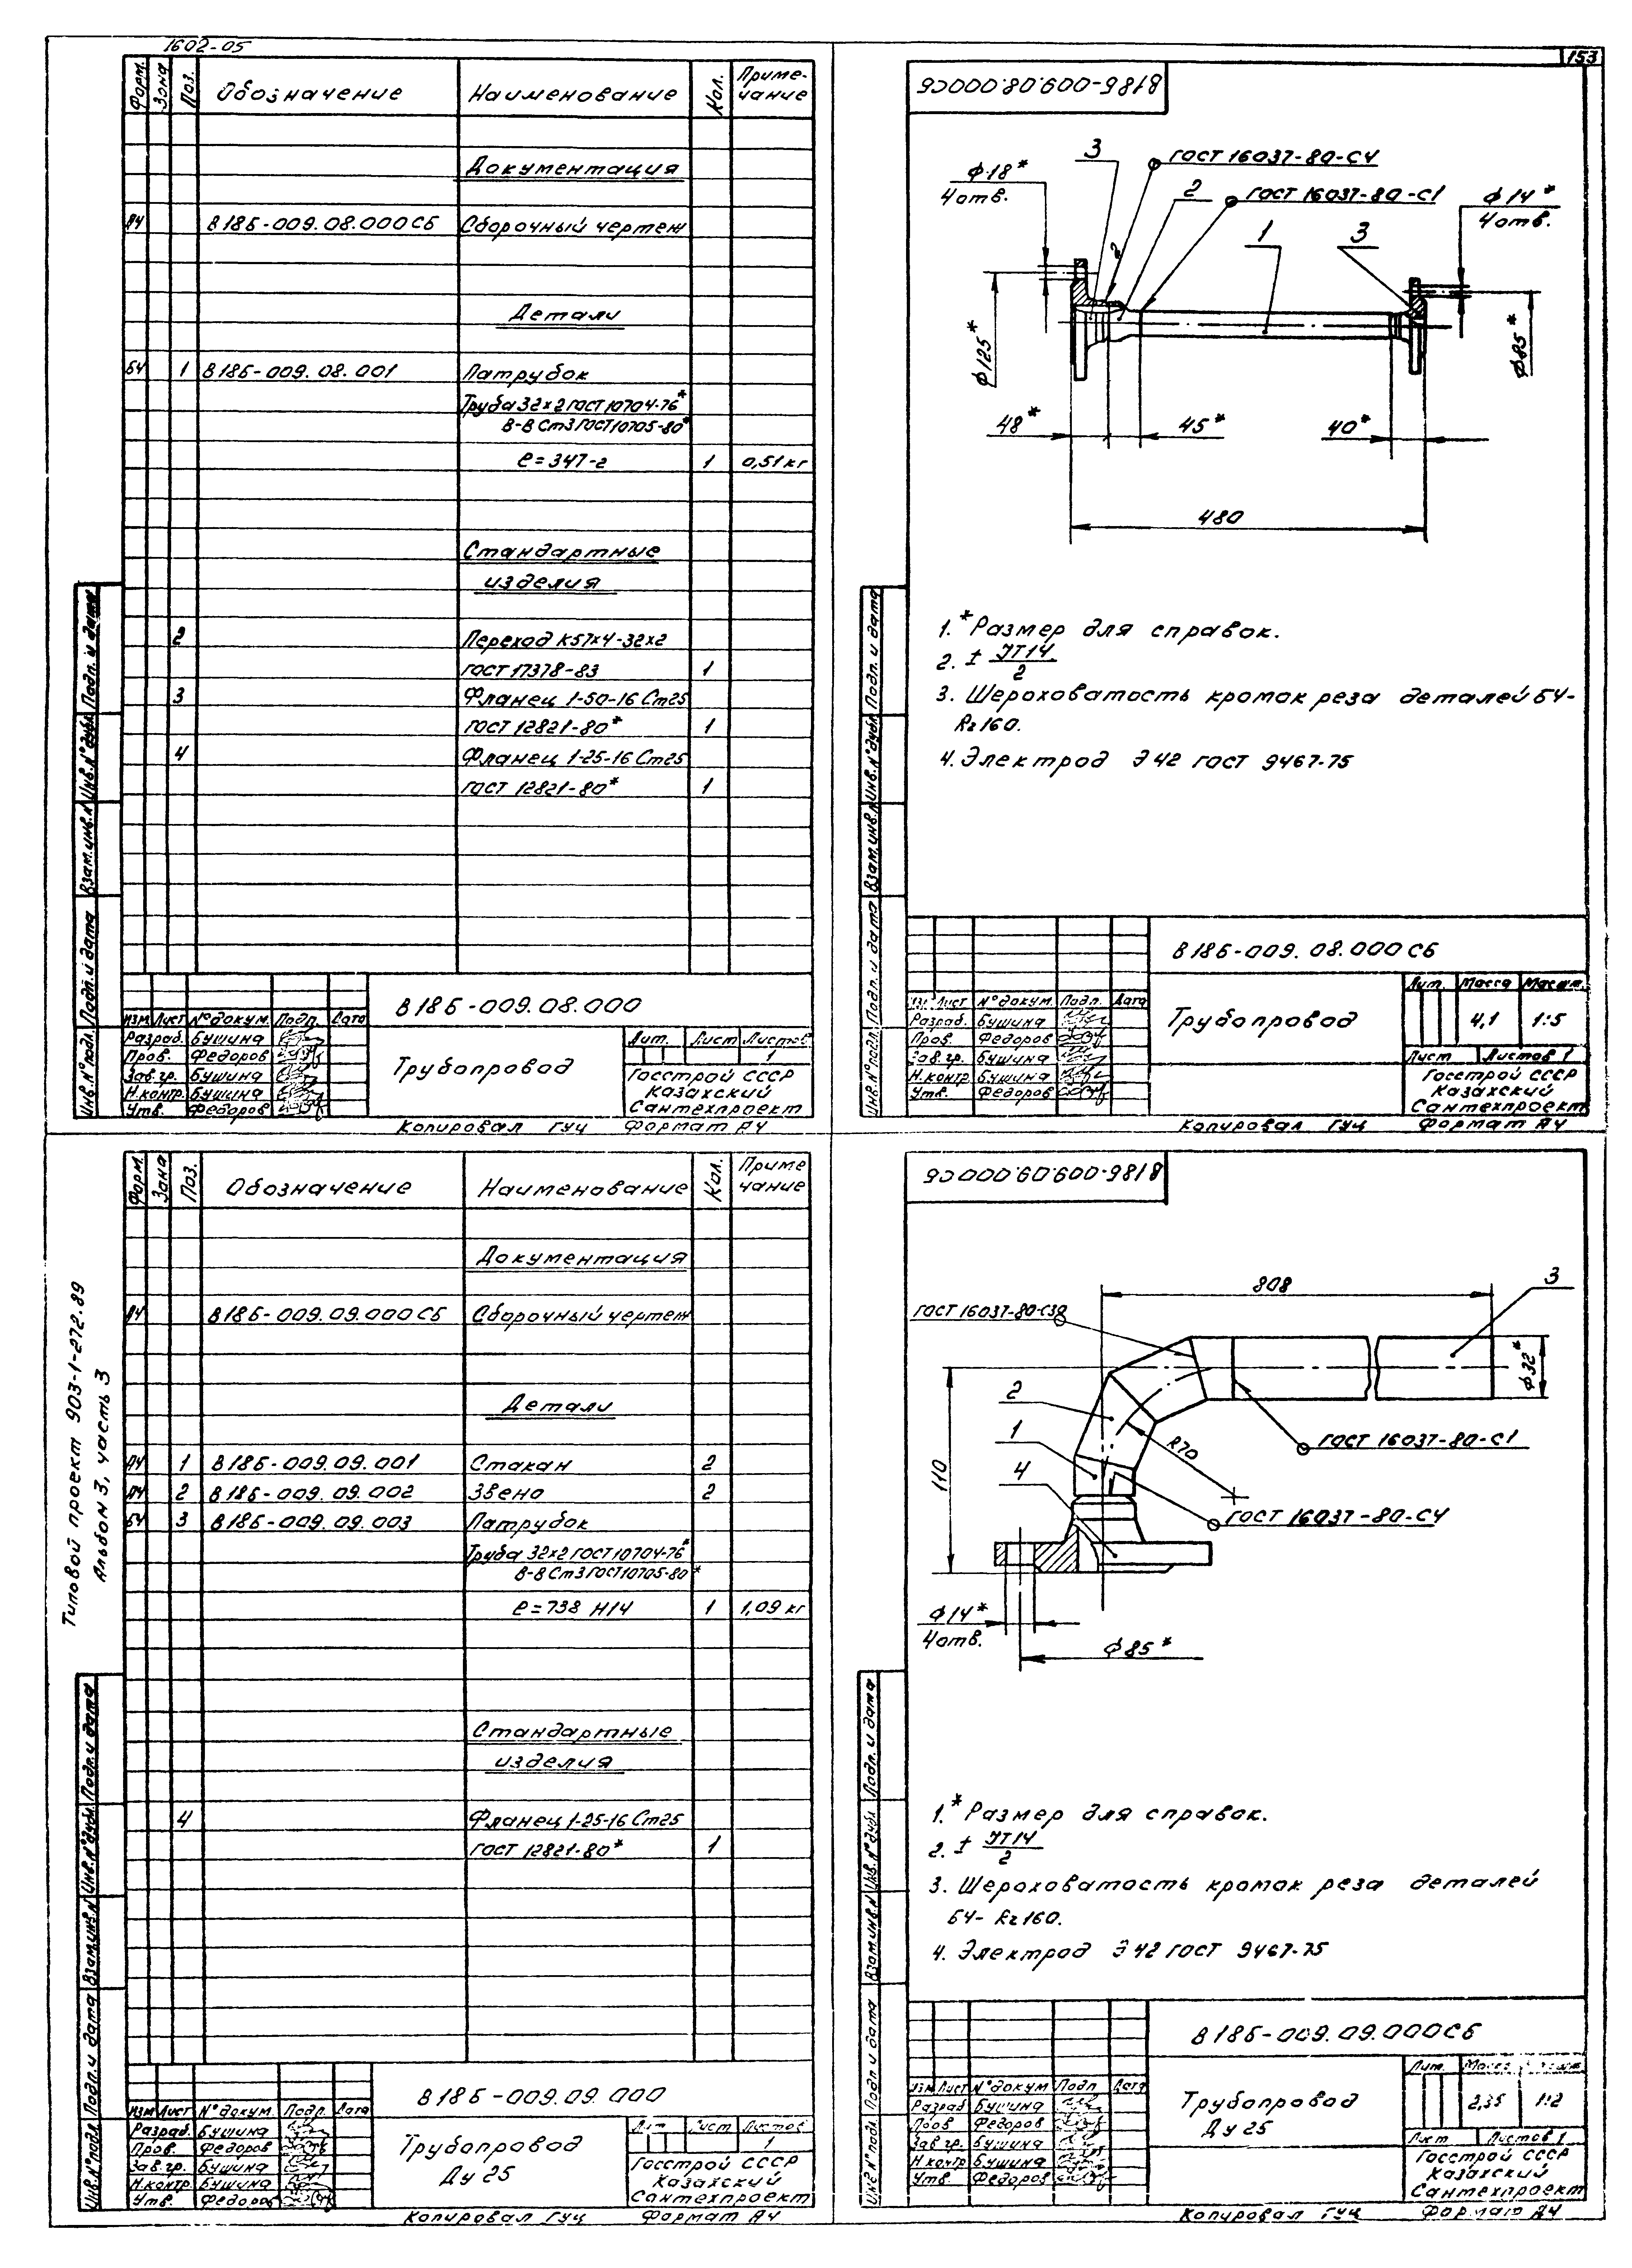 1602-05
153
Форм.
Зона
Поз.
Обозначение
Наименование
Кол.
Приме-
чание
Документация
А4 В186-009.08.000СБ Сборочный чертеж
Детали
БЧ 1 В186-009.08.001 Патрубок
Труба 32×2 ГОСТ 10704-76*
В-В Ст3 ГОСТ 10705-80*
ℓ=347-2 1 0,51 кг
Стандартные
изделия
2 Переход К57×4-32×2
ГОСТ 17378-83 1
3 Фланец 1-50-16 Ст25
ГОСТ 12821-80* 1
4 Фланец 1-25-16 Ст25
ГОСТ 12821-80* 1
Подп. и дата
Инв.№ дубл.
Взам.инв.№
Подп. и дата
Инв.№ подл.
В186-009.08.000
Изм Лист № докум. Подп. Дата
Разраб. Бушина
Пров. Федоров
Зав.гр. Бушина
Н.контр. Бушина
Утв. Федоров
Трубопровод
Лит. Лист Листов
1
Госстрой СССР
Казахский
Сантехпроект
Копировал ГУЦ Формат А4
В186-009.08.000СБ
3
ГОСТ 16037-80-С4
Ф18*
4 отв.
2
ГОСТ 16037-80-С1
Ф14*
4 отв.
1
3
2
Ф125*
Ф85*
48*
45*
40*
480
1.*Размер для справок.
2. ± JT14
2
3. Шероховатость кромок реза деталей БЧ-
Rz160.
4. Электрод Э42 ГОСТ 9467-75
Подп. и дата
Инв.№ дубл.
Взам.инв.№
Подп. и дата
Инв.№ подл.
В186-009.08.000СБ
Изм Лист № докум. Подп. Дата
Разраб. Бушина
Пров. Федоров
Зав.гр. Бушина
Н.контр. Бушина
Утв. Федоров
Трубопровод
Лит. Масса Масшт.
4,1 1:5
Лист Листов 1
Госстрой СССР
Казахский
Сантехпроект
Копировал ГУЦ Формат А4
Типовой проект 903-1-272.89
Альбом 3, часть 3
Форм.
Зона
Поз.
Обозначение
Наименование
Кол.
Приме
чание
Документация
А4 В186-009.09.000СБ Сборочный чертеж
Детали
А4 1 В186-009.09.001 Стакан 2
А4 2 В186-009.09.002 Звено 2
БЧ 3 В186-009.09.003 Патрубок
Труба 32×2 ГОСТ 10704-76*
В-В Ст3 ГОСТ 10705-80*
ℓ=738 Н14 1 1,09 кг
Стандартные
изделия
4 Фланец 1-25-16 Ст25
ГОСТ 12821-80* 1
Подп. и дата
Инв.№ дубл.
Взам.инв.№
Подп. и дата
Инв.№ подл.
В186-009.09.000
Изм Лист № докум. Подп. Дата
Разраб. Бушина
Пров. Федоров
Зав.гр. Бушина
Н.контр. Бушина
Утв. Федоров
Трубопровод
Ду 25
Лит Лист Листов
1
Госстрой СССР
Казахский
Сантехпроект
Копировал ГУЦ Формат А4
В186-009.09.000СБ
808
3
ГОСТ 16037-80-С39
Ф32*
2
1
4
R70
ГОСТ 16037-80-С1
110
ГОСТ 16037-80-С4
Ф14*
4 отв.
Ф85*
1.*Размер для справок.
2. ± JT14
2
3. Шероховатость кромок реза деталей
БЧ- Rz160.
4. Электрод Э42 ГОСТ 9467-75
Подп. и дата
Инв.№ дубл
Взам.инв.№
Подп. и дата
Инв.№ подл.
В186-009.09.000СБ
Изм Лист № докум Подп Дата
Разраб Бушина
Пров Федоров
Зав.гр. Бушина
Н.контр Бушина
Утв. Федоров
Трубопровод
Ду 25
Лит. Масса
2,35 1:2
Лист Листов 1
Госстрой СССР
Казахский
Сантехпроект
Копировал ГУЦ Формат А4